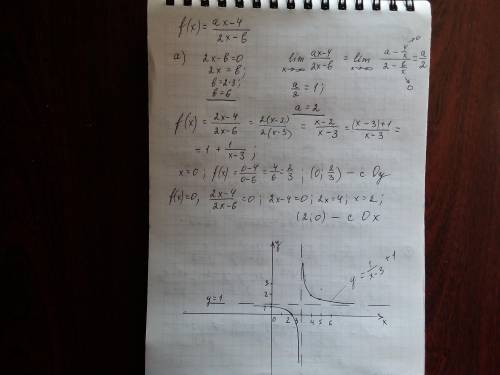 f(x) = ax-4 / 2x-b
a) 2x-b=0
2x = b;
b=2·3;
b=6
lim x→∞ ax-4 / 2x-b = lim x→∞ a - 4/x →0 / 2 - b/x →0 = a/2
a/2 = 1;
a = 2
f(x) = 2x-4 / 2x-6 = 2(x-2) / 2(x-3) = x-2 / x-3 = (x-3)+1 / x-3 =
= 1 + 1 / x-3 ;
x=0 ; f(x) = 0-4 / 0-6 = 4/6 = 2/3 ; (0; 2/3) – с Oy
f(x)=0, 2x-4 / 2x-6 = 0; 2x-4=0; 2x=4; x=2;
(2;0) – с Ox
y
y = 1 / x-3 +1
3
2
y=1
1
0 2 3 4 5 6 x